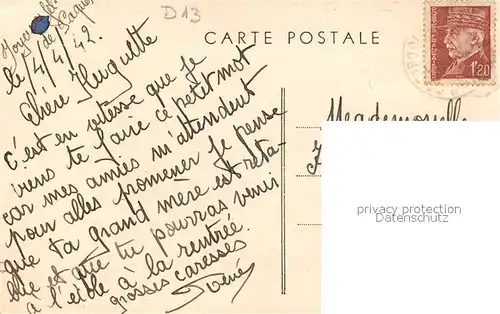 Joyeuses
de Pâques
D13
le 4/4/42.
CARTE POSTALE
1f20
Chère Huguette
C'est en vitesse que je
viens te faire ce petit mot
car mes amies m'attendent
pour aller promener. Je pense
que ta grand mère est réta-
blie et que tu pourras venir
à l'école à la rentrée.
grosses caresses.
Mademoiselle
privacy protection
www.ansichtskarten-center.de